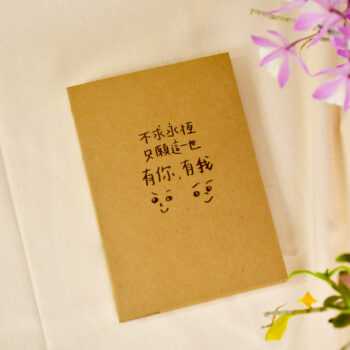 不求永恆
只願這一世
有你、有我